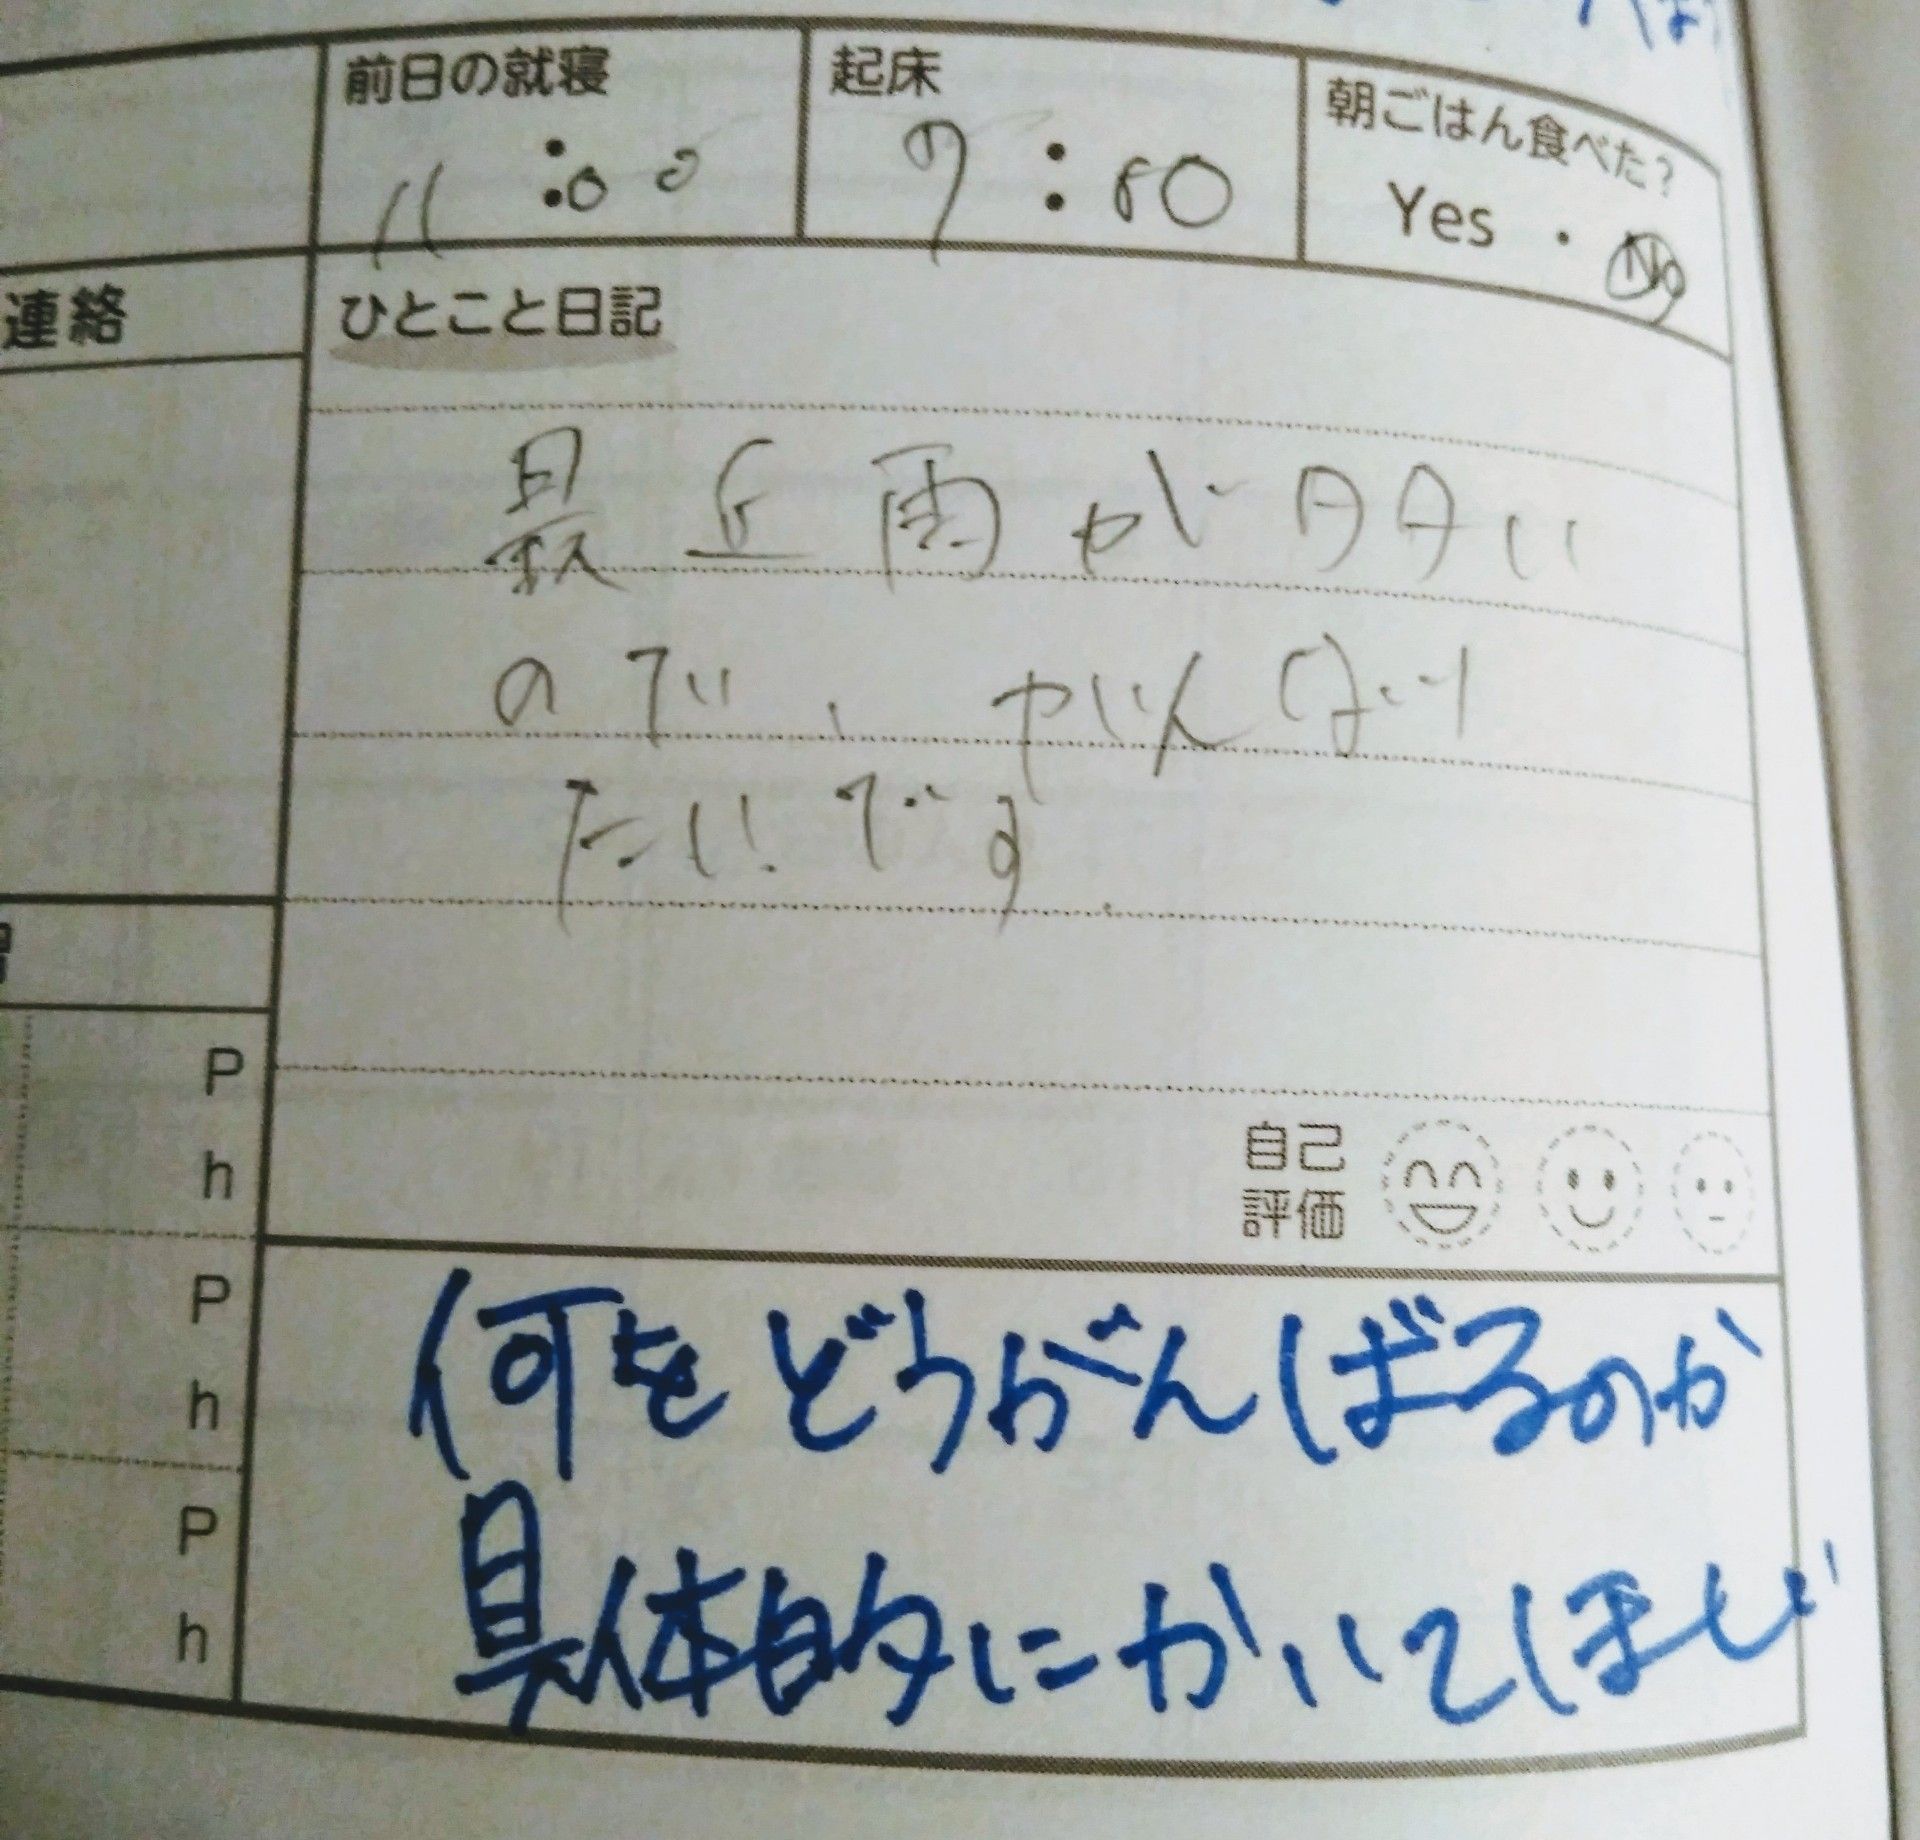 前日の就寝
11:00
起床
7:50
朝ごはん食べた?
Yes・No
連絡
ひとこと日記
最近雨が多い
ので、がんばり
たいです.
P
h
P
h
P
h
自己
評価
何をどうがんばるのか
具体的にかいてほしい